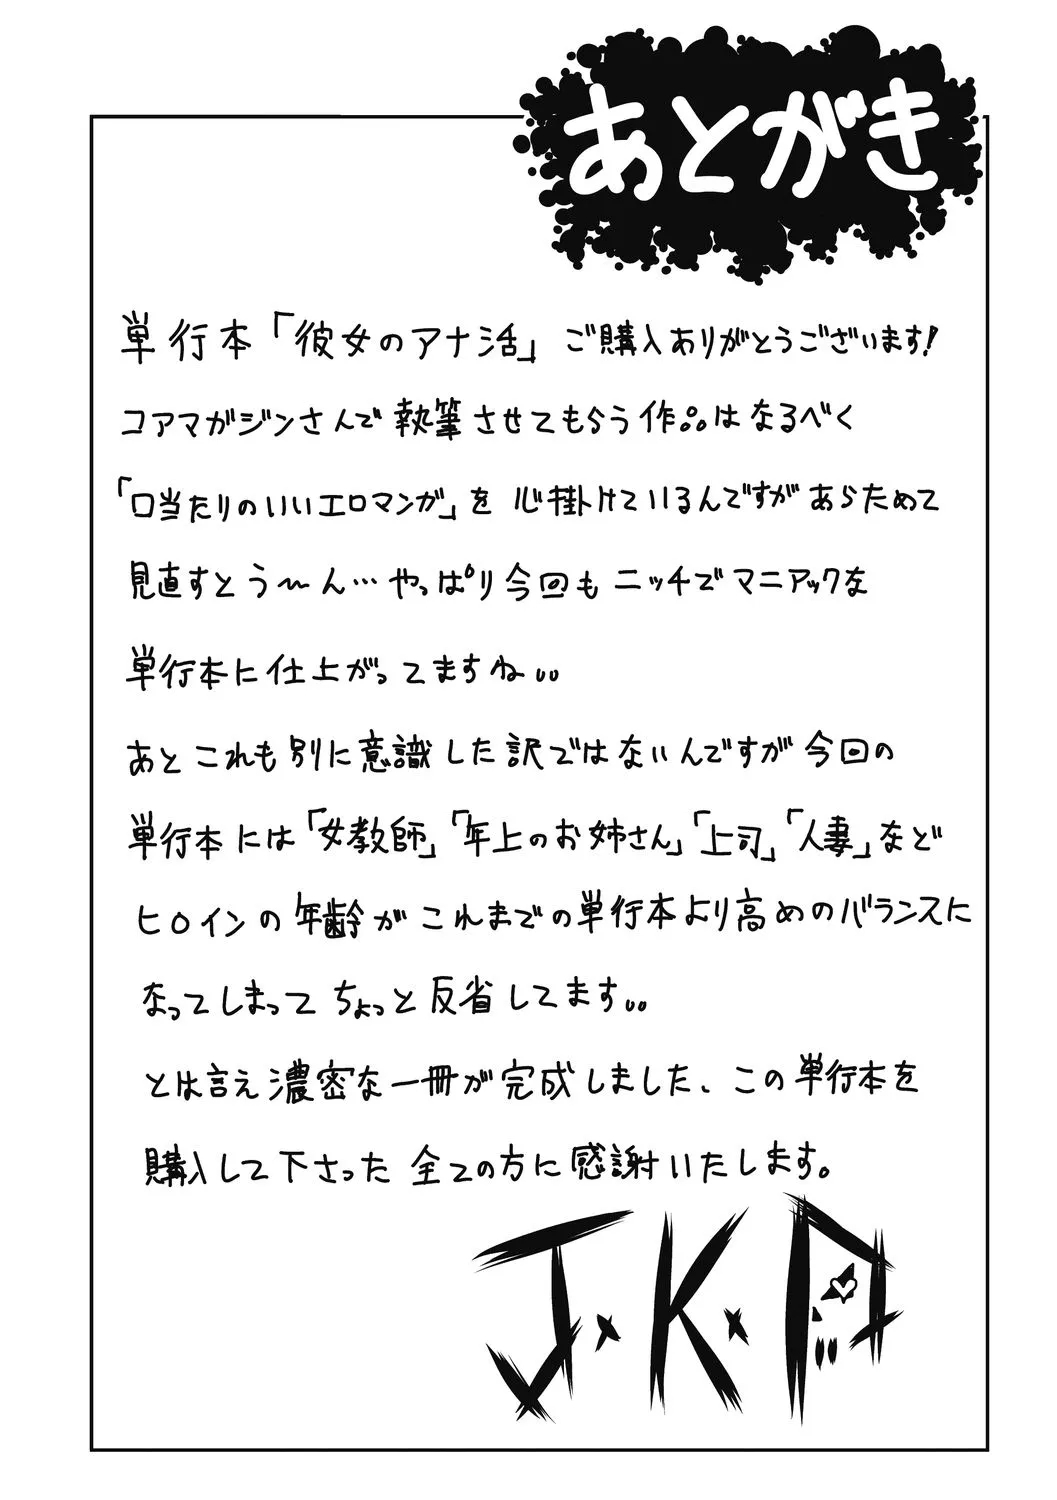 あとがき
単行本「彼女のアナ活」ご購入ありがとうございます!
コアマガジンさんで執筆させてもらう作品はなるべく
「口当たりのいいエロマンガ」を心掛けているんですがあらためて
見直すとう〜ん…やっぱり今回もニッチでマニアックな
単行本に仕上がってますね。。
あとこれも別に意識した訳ではないんですが今回の
単行本には「女教師」「年上のお姉さん」「上司」「人妻」など
ヒロインの年齢がこれまでの単行本より高めのバランスに
なってしまってちょっと反省してます。。
とは言え濃密な一冊が完成しました、この単行本を
購入して下さった全ての方に感謝いたします。
J・K・D